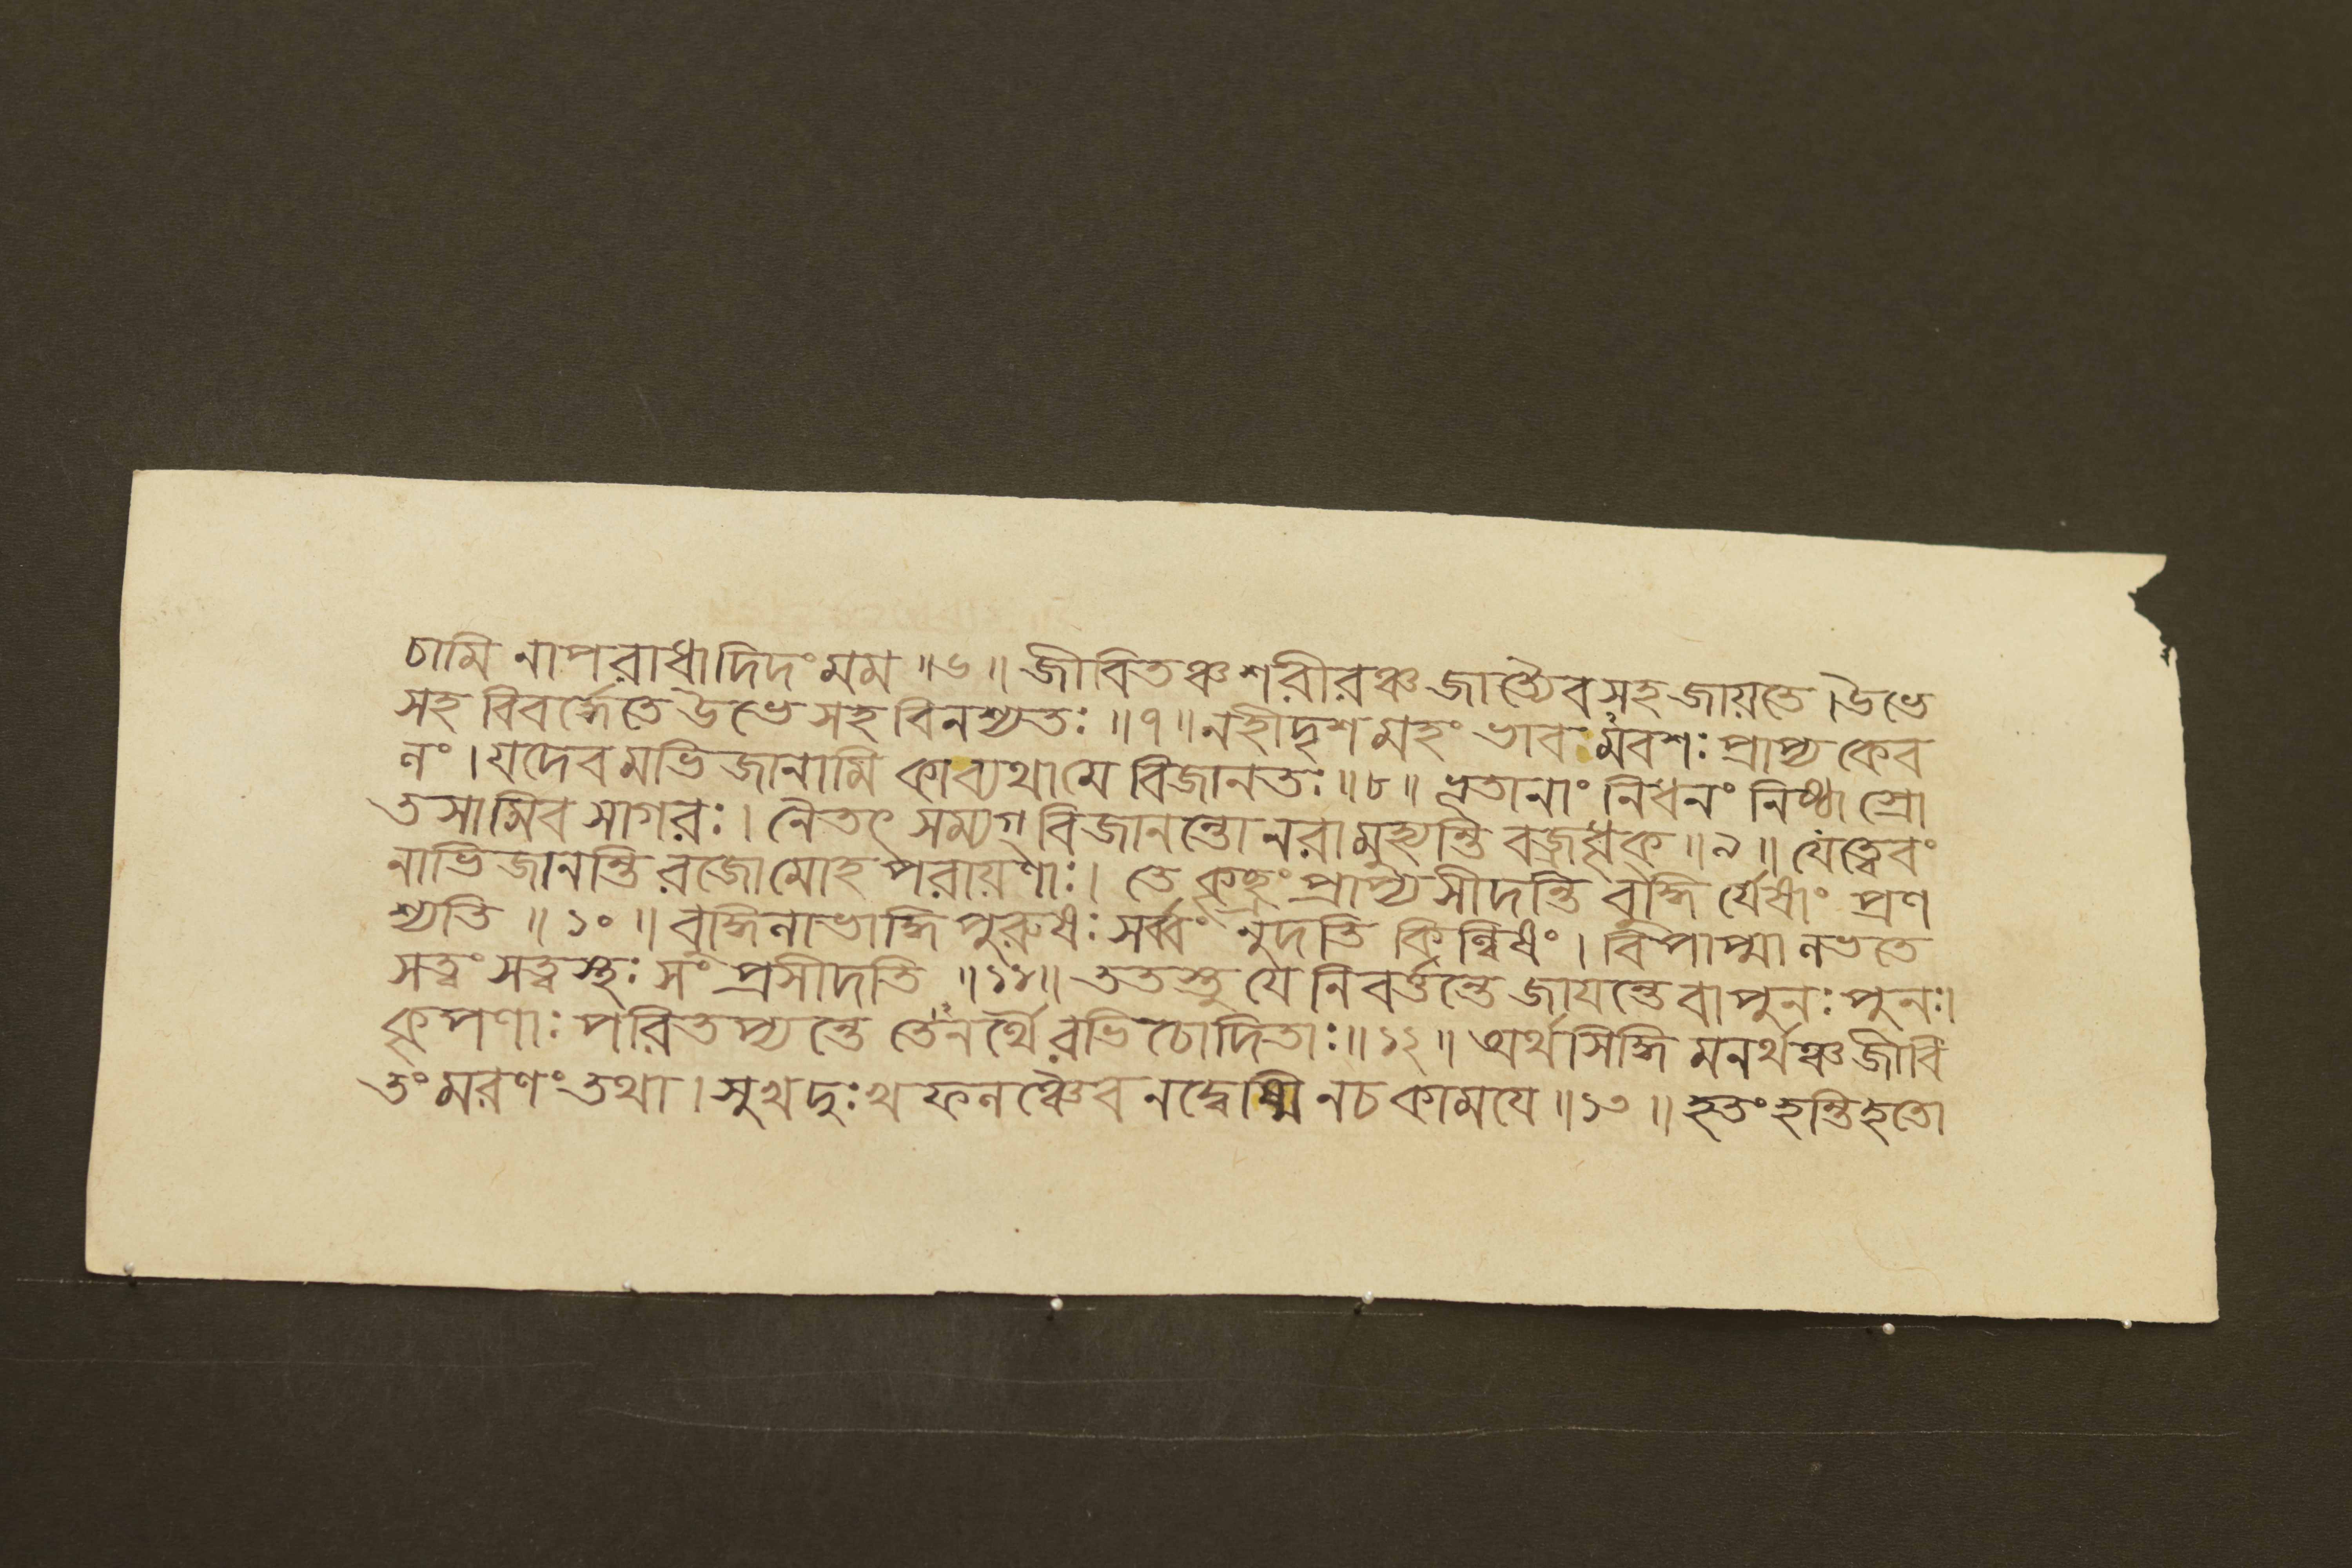 চামি নাপরাধাদিদং মম ॥৬॥ জীবিতঞ্চ শরীরঞ্চ জাত্যৈব সহ জায়তে । উভে
সহ বিবর্দ্ধেতে উভে সহ বিনশ্যতঃ ॥৭॥ নহীদৃশমহং ভাবমবশঃ প্রাপ্য কেব
লং । যদেবমভিজানামি কা ব্যথা মে বিজানতঃ ॥৮॥ ভূতানাং নিধনং নিষ্ঠা স্রো
তসামিব সাগরঃ । নৈতৎ সম্যগ্ বিজানন্তো নরা মুহ্যন্তি বজ্রধৃক্ ॥৯॥ যেত্বেবং
নাভিজানন্তি রজোমোহপরায়ণাঃ । তে কৃচ্ছ্রং প্রাপ্য সীদন্তি বুদ্ধির্যেষাং প্রণ
শ্যতি ॥১০॥ বুদ্ধিলাভাদ্ধি পুরুষঃ সর্ব্বং নুদতি কিল্বিষং । বিপাপ্মা লভতে
সত্ত্বং সত্ত্বস্থঃ সংপ্রসীদতি ॥১১॥ ততস্তু যে নিবর্ত্তন্তে জায়ন্তে বা পুনঃ পুনঃ।
কৃপণাঃ পরিতপ্যন্তে তেনর্থৈরভিচোদিতাঃ ॥১২॥ অর্থসিদ্ধিমনর্থঞ্চ জীবি
তং মরণং তথা । সুখদুঃখফলঞ্চৈব ন দ্বেষ্মি নচ কাময়ে ॥১৩॥ হতং হন্তি হতো